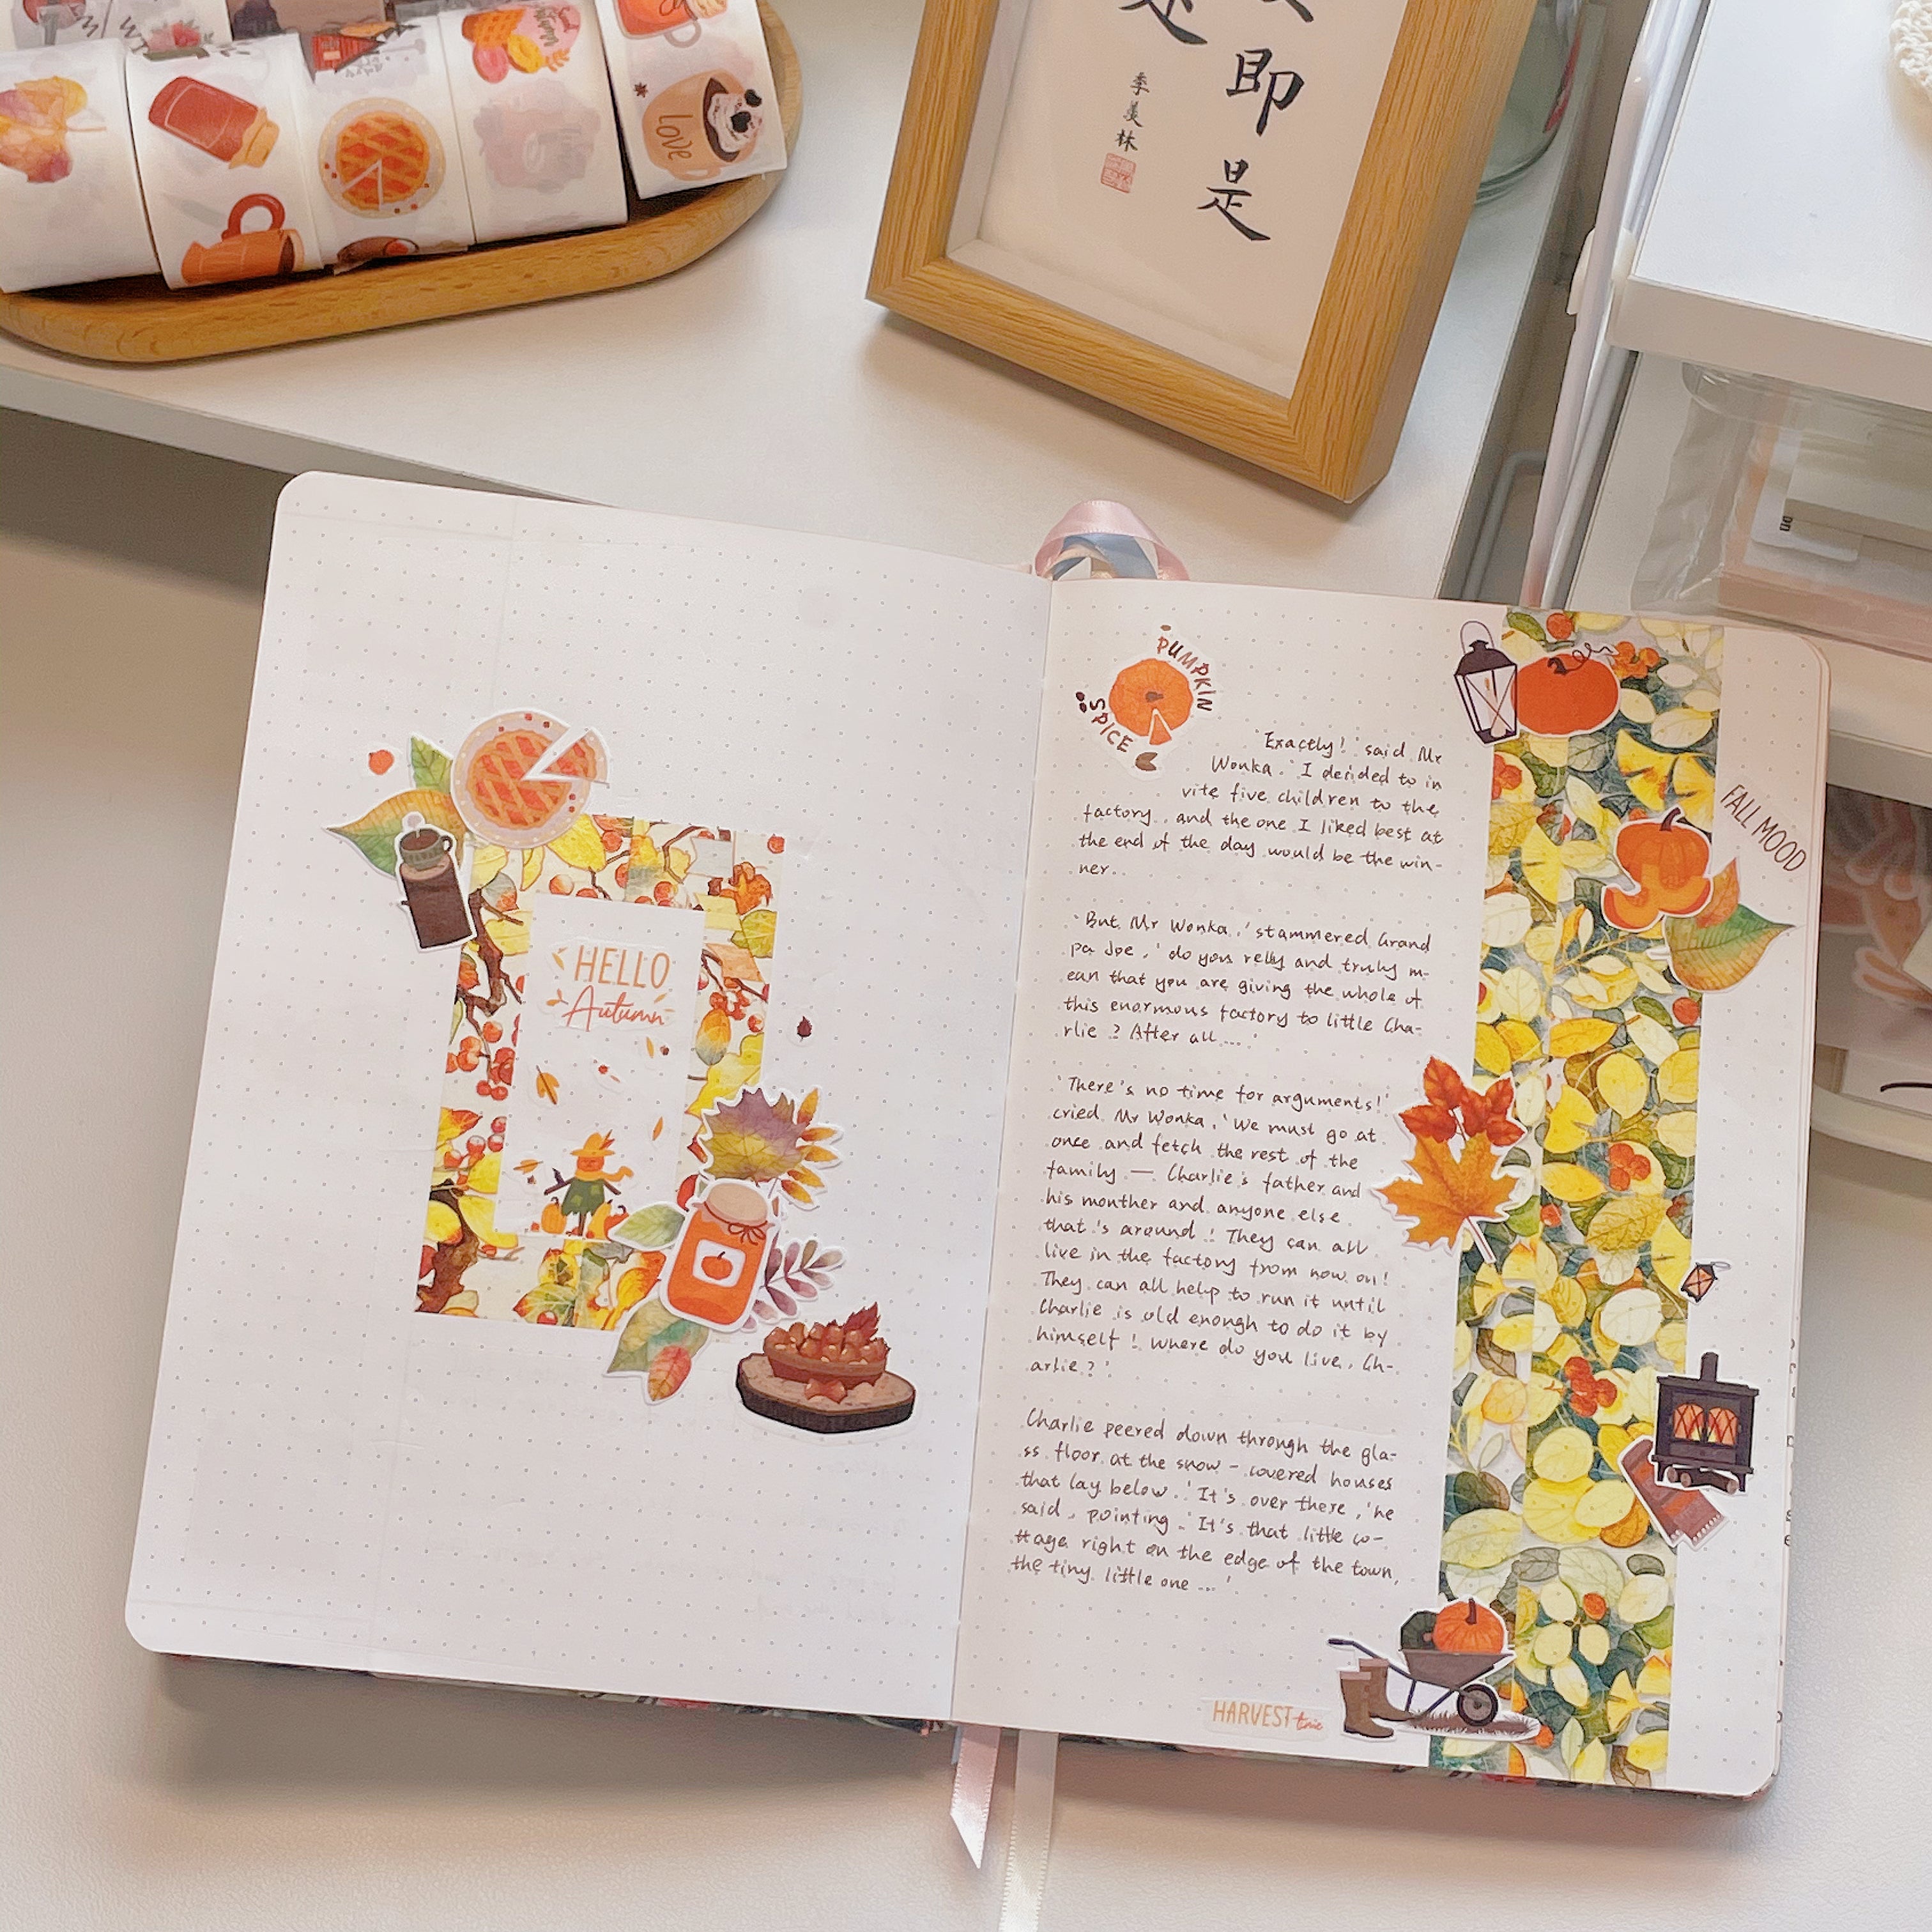 LOVE
即
是
季羡林
HELLO
Autumn
PUMPKIN
SPICE
'Exactly!' said Mr
Wonka. 'I decided to in
vite five children to the
factory, and the one I liked best at
the end of the day would be the win-
ner..
'But Mr Wonka,' stammered Grand
pa Joe, 'do you relly and truly m-
ean that you are giving the whole of
this enormous factory to little Cha-
rlie? After all....'
'There's no time for arguments!'
cried Mr Wonka. 'We must go at
once and fetch the rest of the
family — Charlie's father and
his monther and anyone else
that's around! They can all
live in the factory from now on!
They can all help to run it until
Charlie is old enough to do it by
himself! Where do you live, Ch-
arlie?'
Charlie peered down through the gla-
ss floor at the snow-covered houses
that lay below. 'It's over there,' he
said, pointing. 'It's that little co-
ttage right on the edge of the town,
the tiny little one ...'
FALL MOOD
HARVEST time